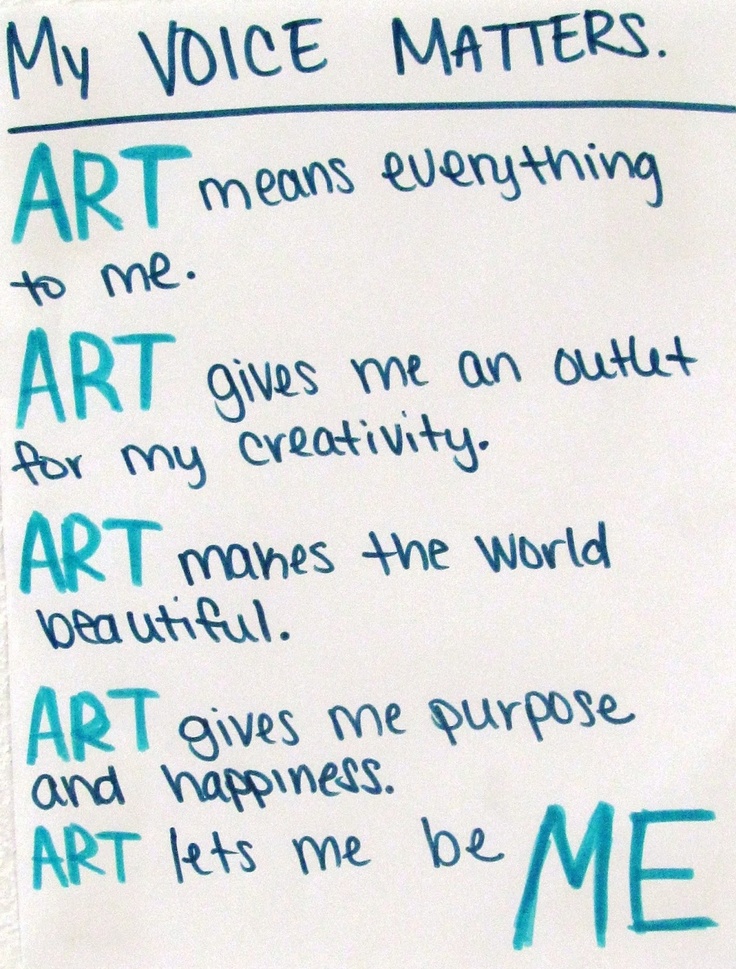 My VOICE MATTERS.
ART means everything
to me.
ART gives me an outlet
for my creativity.
ART makes the world
beautiful.
ART gives me purpose
and happiness.
ART lets me be ME